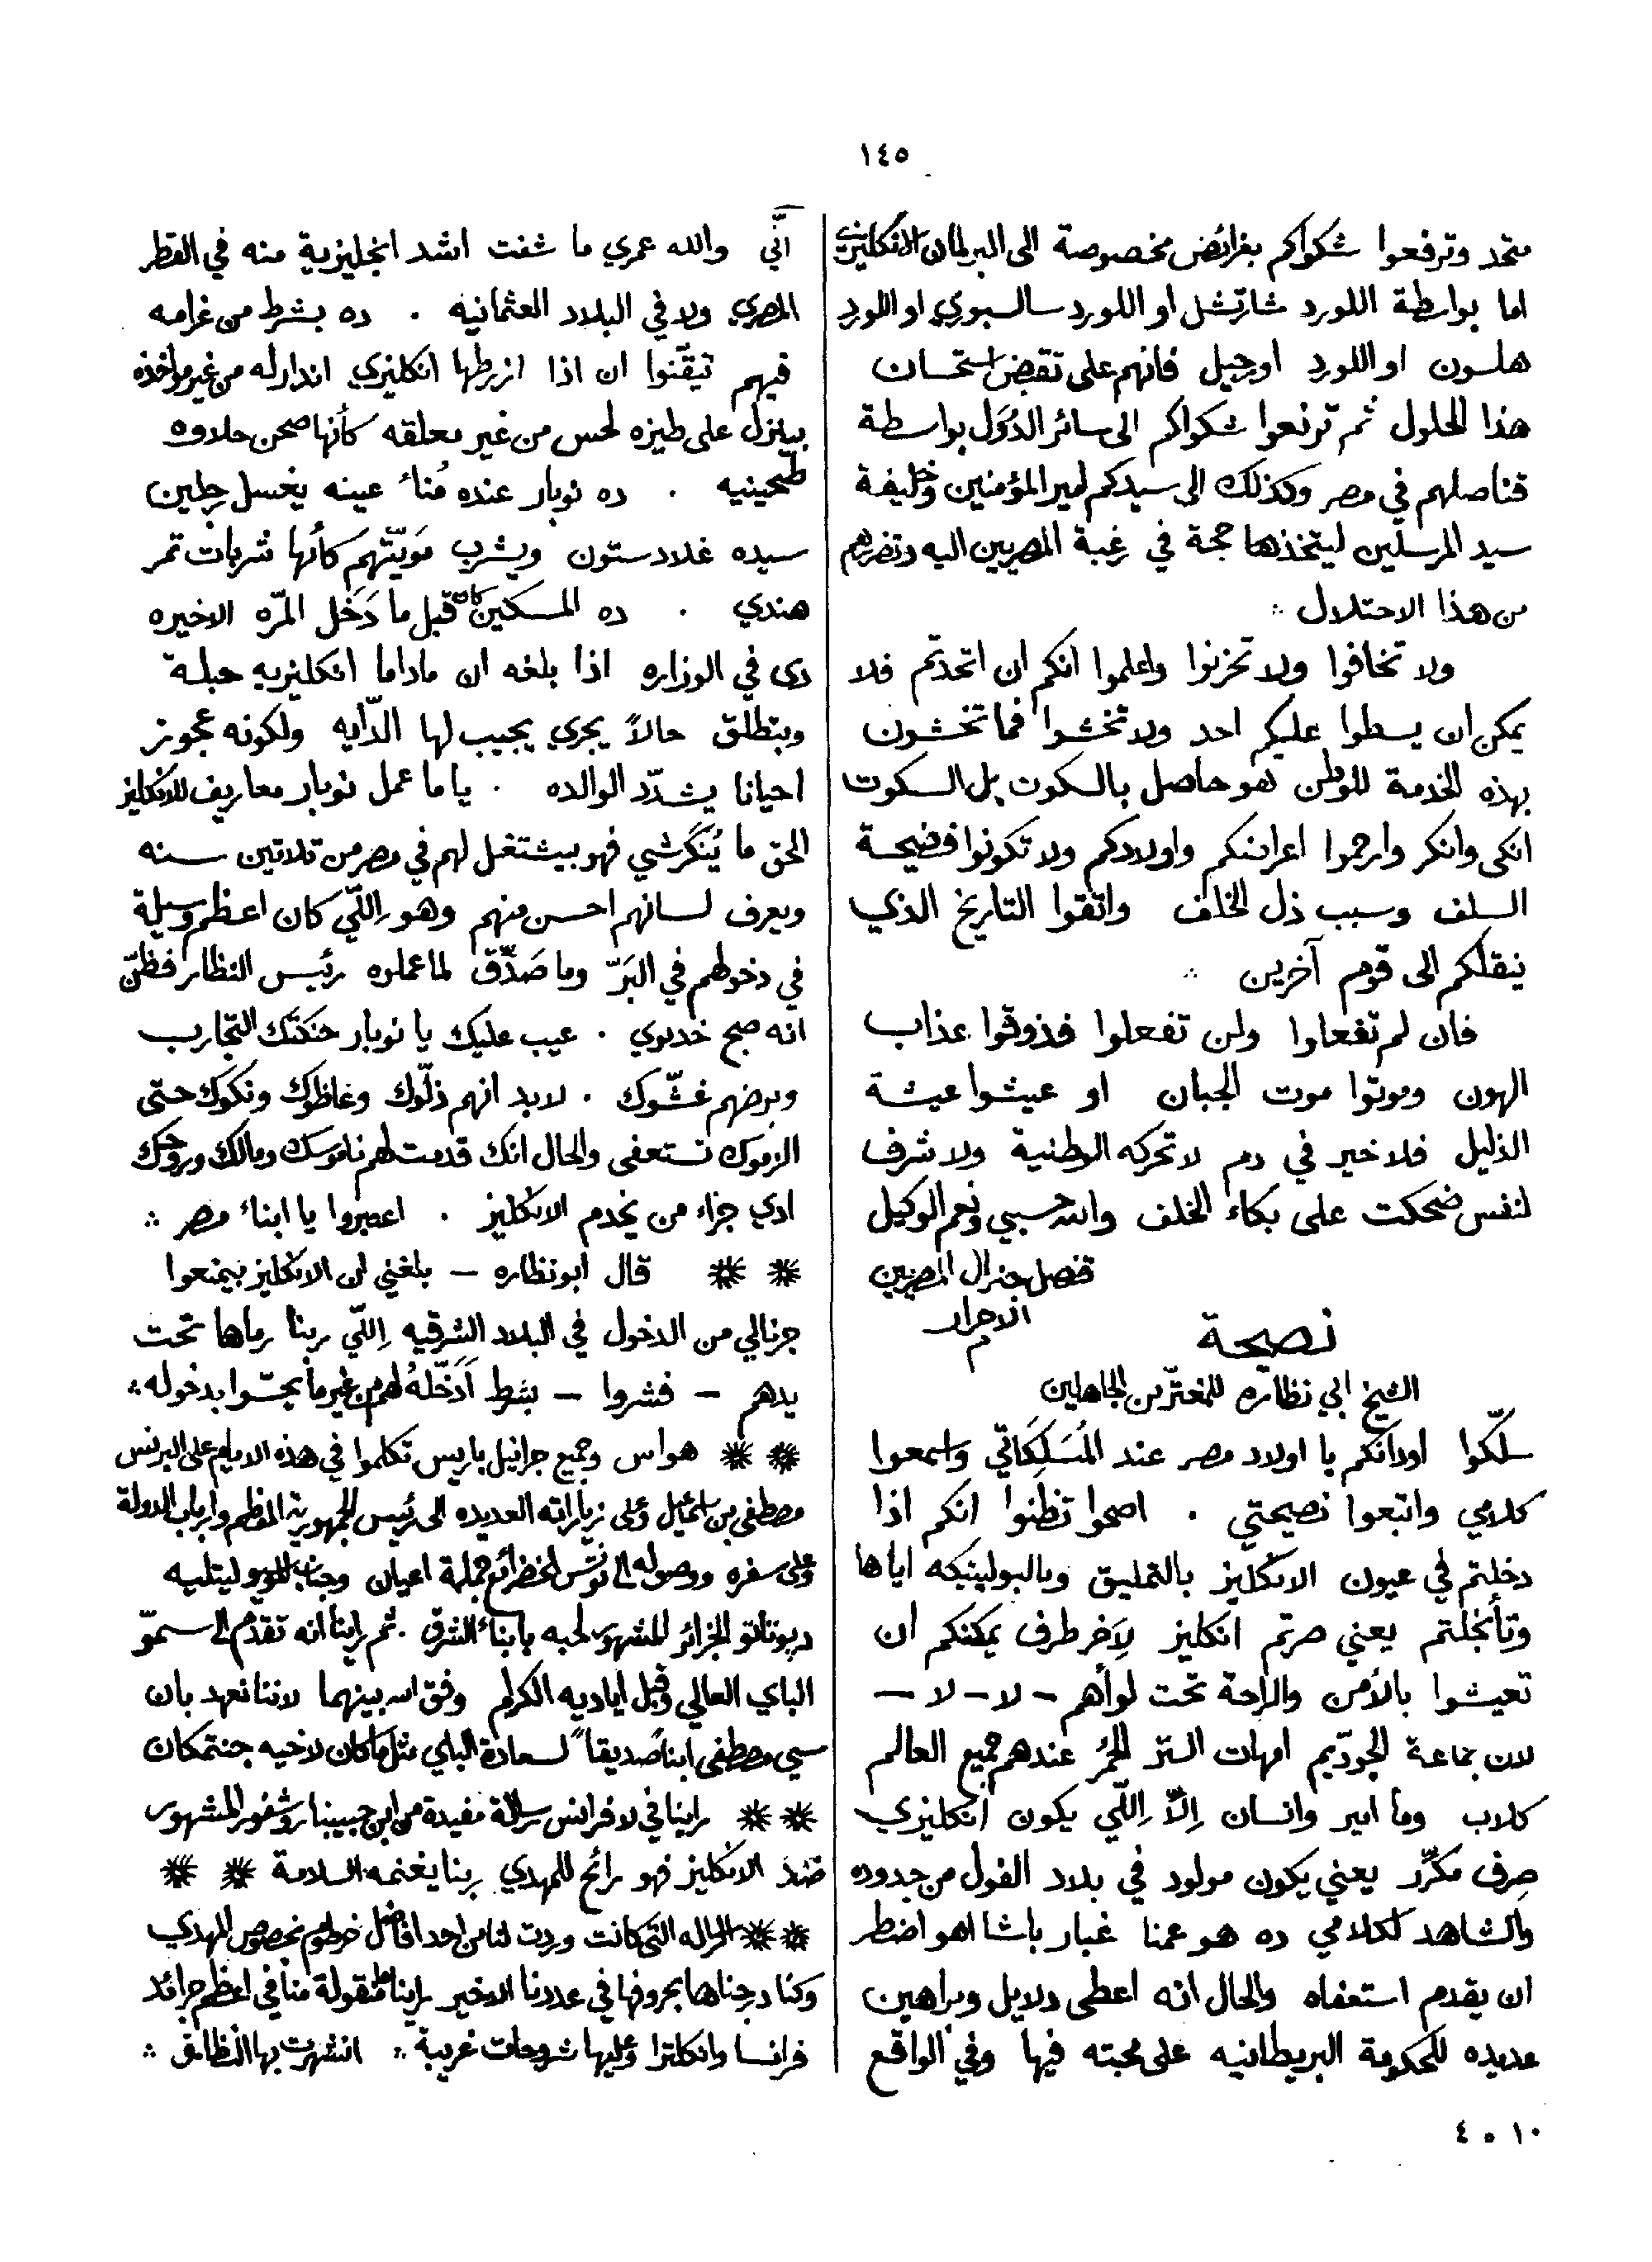 ١٤٥
متحد وترفعوا شكواكم بغرائض مخصوصة الى البرلمان الانكليزي
اما بواسطة اللورد شارتشل او اللورد سالسبوري او اللورد
هلسون او اللورد اوجيل فانهم على نقض استحسان
هذا الحلول ثم ترفعوا شكواكم الى سائر الدوَل بواسطة
قناصلهم في مصر وكذلك الى سيدكم امير المؤمنين وخليفة
سيد المرسلين ليتخذها حجة في رغبة المصريين اليه وتضررهم
من هذا الاحتلال ∴
ولا تخافوا ولا تحزنوا واعلموا انكم ان اتحدتم فلا
يمكن ان يسطوا عليكم احد ولا تخشوا فما تخشون
بهذه الخدمة للوطن هو حاصل بالسكوت بل السكوت
انكى وانكر وارحموا اعراضكم واولادكم ولا تكونوا فضيحة
السلف وسبب ذل الخلف واتقوا التاريخ الذي
ينقلكم الى قوم آخرين ∴
فان لم تفعلوا ولن تفعلوا فذوقوا عذاب
الهون وموتوا موت الجبان او عيشوا عيشة
الذليل فلا خير في دم لا تحركه الوطنية ولا شرف
لنفس ضحكت على بكاء الخلف والله حسبي ونعم الوكيل
قنصل جنرال المصريين
الاحرار
م
نصيحة
الشيخ ابي نظاره للمغترّين الجاهلين
سلّكوا اودانكم يا اولاد مصر عند المُسَلِكَاتي واسمعوا
كلامي واتبعوا نصيحتي . اصحوا تظنوا انكم اذا
دخلتم في عيون الانكليز بالتمليق وبالبولينيكه اياها
وتأنجلتم يعني صرتم انكليز لِآخر طرف يمكنكم ان
تعيشوا بالأمن والراحة تحت لوأهم – لا – لا –
لان جماعة الجودّيم امهات الستر الحُمُر عندهم جميع العالم
كلاب وما امير وانسان اِلاَّ اِللّي يكون انكليزي
صِرف مكرَّر يعني يكون مولود في بلاد الفول من جدوده
والشاهد لكلامي ده هو عمنا غبار باشا اهو اضطر
ان يقدم استعفاه والحال انه اعطى دلايل وبراهين
عديده للحكومة البريطانيه على محبته فيها وفي الواقع
انّي والله عمري ما شفت اشد انجليزية منه في القطر
المصري ولا في البلاد العثمانيه . ده بشرط من غرامه
فيهم تيقّنوا ان اذا ازرطها انكليزي اندارله من غير مواخذه
بينزل على طيزه لحس من غير معلقه كأنها صحن حلاوه
طحينيه . ده نوبار عنده مُناء عينه يغسل رجلين
سيده غلادستون ويشرب مَويّتهم كأنها شربات تمر
هندي . ده المسكين كان قبل ما دَخَل المرّه الاخيره
دى في الوزاره اذا بلغه ان ماداما انكليزيه حبلة
وبتطلق حالاً يجري يجيب لها الدّايه ولكونه عجوز
احيانا يشدّد الوالده . ياما عمل نوبار معاريف للانكليز
الحق ما يُنْكَرشي فهو بيشتغل لهم في مصر من تلاتين سنه
ويعرف لسانهم احسن منهم وهو اللّي كان اعظم وسيلة
في دخولهم في البَرّ وما صَدَّق لما عملوه رئيس النظار فظنّ
انه صبح خديوي . عيب عليك يا نوبار حنكتك التجارب
وبرضهم غشّوك . لابد انهم ذلّوك وغاظوك ونكوك حتى
الزموك تستعفى والحال انك قدمت لهم ناموسك ومالك وروحك
ادي جزاء من يخدم الانكليز . اعتبروا يا ابناء مصر ∴
⁂ ⁂ قال ابونظاره – بلغني ان الانكليز بيمنعوا
جرنالي من الدخول في البلاد الشرقيه اِللّي ربنا رماها تحت
يدهم – فشروا – بشرط اَدَخّلهُ لهم من غير ما يحسّوا بدخوله ∴
⁂ ⁂ هواس وجميع جرانيل باريس تكلموا في هذه الايام على البرنس
مصطفى بن اسماعيل وعلى زياراته العديده الى رئيس الجمهورية المفظم وارباب الدولة
وعلى سفره ووصوله الى تونس الخضراء مع جملة اعيان وجناب الموسيو ليتلييه
ديوتاتو الجزائر المشهور لحبه بابناء الشرق . ثم راينا انه تقدّم الى سموّ
الباي العالي وقبل اياديه الكرام وفق الله بينهما لاننا نعهد بان
سي مصطفى ابناً صديقاً لسعادة الباي مثل ما كان لاخيه جنتمكان
⁂ ⁂ راينا في لافرانس رسالة مفيدة من ابن حبيبنا روشفور المشهور
ضد الانكليز فهو رائح للمهدي ربنا يغنمه السلامة ⁂ ⁂
⁂ ⁂ الرساله التى كانت وردت لنا من احد افاضل خرطوم بخصوص المهدي
وكنا درجناها بحروفها في عددنا الاخير راينا منقولة منا في اعظم جرائد
فرانسا وانكلترا وعليها شروحات غريبة ∴ انشهرت بها النظارة ∴
١٠ ٥ ٤